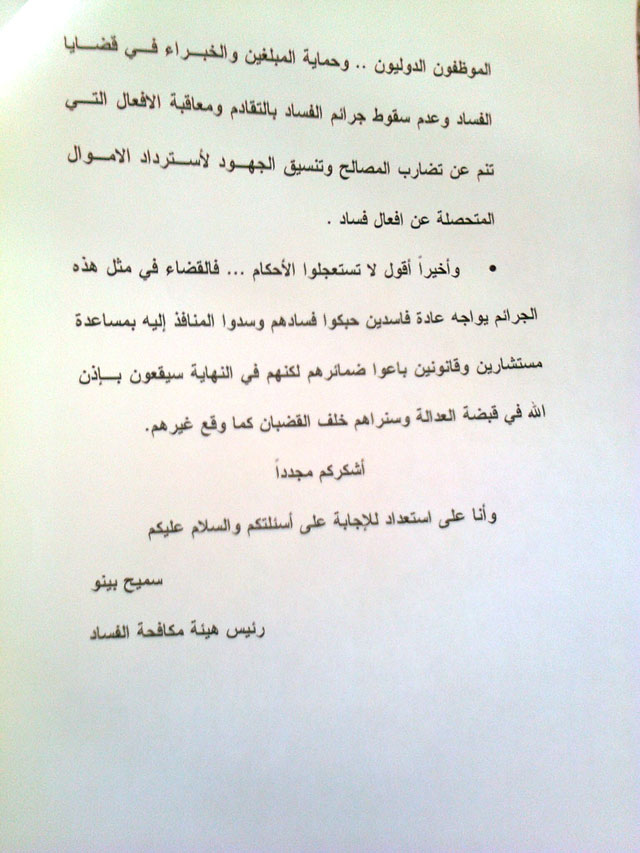 الموظفون الدوليون .. وحماية المبلغين والخبراء في قضايا
الفساد وعدم سقوط جرائم الفساد بالتقادم ومعاقبة الافعال التي
تنم عن تضارب المصالح وتنسيق الجهود لأسترداد الاموال
المتحصلة عن افعال فساد .
• وأخيراً أقول لا تستعجلوا الأحكام ... فالقضاء في مثل هذه
الجرائم يواجه عادة فاسدين حبكوا فسادهم وسدوا المنافذ إليه بمساعدة
مستشارين وقانونين باعوا ضمائرهم لكنهم في النهاية سيقعون بإذن
الله في قبضة العدالة وسنراهم خلف القضبان كما وقع غيرهم.
أشكركم مجدداً
وأنا على استعداد للإجابة على أسئلتكم والسلام عليكم
سميح بينو
رئيس هيئة مكافحة الفساد